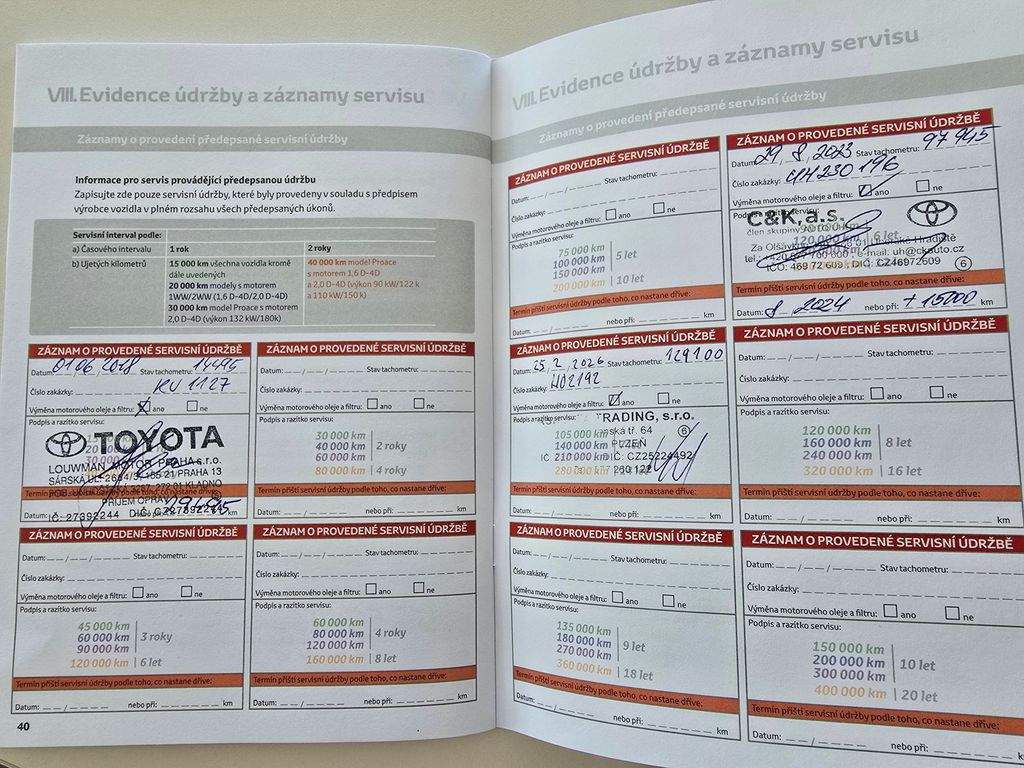 VIII. Evidence údržby a záznamy servisu
Záznamy o provedení předepsané servisní údržby
Informace pro servis provádějící předepsanou údržbu
Zapisujte zde pouze servisní údržby, které byly provedeny v souladu s předpisem
výrobce vozidla v plném rozsahu všech předepsaných úkonů.
Servisní interval podle:
a) Časového intervalu 1 rok 2 roky
b) Ujetých kilometrů 15 000 km všechna vozidla kromě 40 000 km model Proace
dále uvedených s motorem 1,6 D-4D
20 000 km modely s motorem a 2,0 D-4D (výkon 90 kW/122 k
1WW/2WW (1,6 D-4D/2,0 D-4D) a 110 kW/150 k)
30 000 km model Proace s motorem
2,0 D-4D (výkon 132 kW/180k)
ZÁZNAM O PROVEDENÉ SERVISNÍ ÚDRŽBĚ
Datum: 01 06 2018 Stav tachometru: 14495
Číslo zakázky: KU 1127
Výměna motorového oleje a filtru: ano ne
Podpis a razítko servisu:
TOYOTA
LOUWMAN MOTOR PRAHA s.r.o.
SÁRSKÁ UL. 2694/3, 155 21 PRAHA 13
272 01 KLADNO
Termín příští servisní údržby podle toho, co nastane dříve:
PŘÍJEM OPRAV
29495
IČ: 27392244 DIČ: CZ27392244
ZÁZNAM O PROVEDENÉ SERVISNÍ ÚDRŽBĚ
Datum: / / Stav tachometru:
Číslo zakázky:
Výměna motorového oleje a filtru: ano ne
Podpis a razítko servisu:
30 000 km
40 000 km 2 roky
60 000 km
80 000 km 4 roky
Termín příští servisní údržby podle toho, co nastane dříve:
Datum: nebo při: km
ZÁZNAM O PROVEDENÉ SERVISNÍ ÚDRŽBĚ
Datum: / / Stav tachometru:
Číslo zakázky:
Výměna motorového oleje a filtru: ano ne
Podpis a razítko servisu:
45 000 km
60 000 km 3 roky
90 000 km
120 000 km 6 let
Termín příští servisní údržby podle toho, co nastane dříve:
Datum: nebo při: km
ZÁZNAM O PROVEDENÉ SERVISNÍ ÚDRŽBĚ
Datum: / / Stav tachometru:
Číslo zakázky:
Výměna motorového oleje a filtru: ano ne
Podpis a razítko servisu:
60 000 km
80 000 km 4 roky
120 000 km
160 000 km 8 let
Termín příští servisní údržby podle toho, co nastane dříve:
Datum: nebo při: km
40
VIII. Evidence údržby a záznamy servisu
Záznamy o provedení předepsané servisní údržby
ZÁZNAM O PROVEDENÉ SERVISNÍ ÚDRŽBĚ
Datum: / / Stav tachometru:
Číslo zakázky:
Výměna motorového oleje a filtru: ano ne
Podpis a razítko servisu:
75 000 km
100 000 km 5 let
150 000 km
200 000 km 10 let
Termín příští servisní údržby podle toho, co nastane dříve:
Datum: nebo při: km
ZÁZNAM O PROVEDENÉ SERVISNÍ ÚDRŽBĚ
Datum: 29, 8, 2023 Stav tachometru: 97 945
Číslo zakázky: UH230196
Výměna motorového oleje a filtru: ano ne
Podpis a razítko servisu:
C&K, a.s.
90 000 km
člen skupiny
120 000 km 6 let
Za Olšávkou Uherské Hradiště
tel.: +420 e-mail: uh@ckauto.cz
IČO: 469 72 609 DIČ: CZ46972609 6
Termín příští servisní údržby podle toho, co nastane dříve:
Datum: 8 2024 nebo při: + 15000 km
ZÁZNAM O PROVEDENÉ SERVISNÍ ÚDRŽBĚ
Datum: 25 / 2 / 2026 Stav tachometru: 129100
Číslo zakázky: H02192
Výměna motorového oleje a filtru: ano ne
Podpis a razítko servisu:
TRADING, s.r.o.
105 000 km ská tř. 64 6
140 000 km PLZEŇ
IČ 210 000 km DIČ: CZ25224492
Termín příští servisní údržby podle toho, co nastane dříve:
Datum: nebo při: km
ZÁZNAM O PROVEDENÉ SERVISNÍ ÚDRŽBĚ
Datum: / / Stav tachometru:
Číslo zakázky:
Výměna motorového oleje a filtru: ano ne
Podpis a razítko servisu:
120 000 km
160 000 km 8 let
240 000 km
320 000 km 16 let
Termín příští servisní údržby podle toho, co nastane dříve:
Datum: nebo při: km
ZÁZNAM O PROVEDENÉ SERVISNÍ ÚDRŽBĚ
Datum: / / Stav tachometru:
Číslo zakázky:
Výměna motorového oleje a filtru: ano ne
Podpis a razítko servisu:
135 000 km
180 000 km 9 let
270 000 km
360 000 km 18 let
Termín příští servisní údržby podle toho, co nastane dříve:
Datum: nebo při: km
ZÁZNAM O PROVEDENÉ SERVISNÍ ÚDRŽBĚ
Datum: / / Stav tachometru:
Číslo zakázky:
Výměna motorového oleje a filtru: ano ne
Podpis a razítko servisu:
150 000 km
200 000 km 10 let
300 000 km
400 000 km 20 let
Termín příští servisní údržby podle toho, co nastane dříve:
Datum: nebo při: km